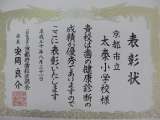 表彰状
京都市立
太秦小学校様
貴校は歯の健康診断の
成績が優秀でありますので
ここに表彰いたします
平成二十年八月二十三日
会長 安岡良介